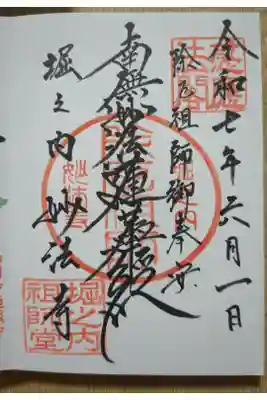 令和七年六月一日
除厄祖師御奉安
南無妙法蓮華経
堀之内妙法寺
堀之内
祖師堂